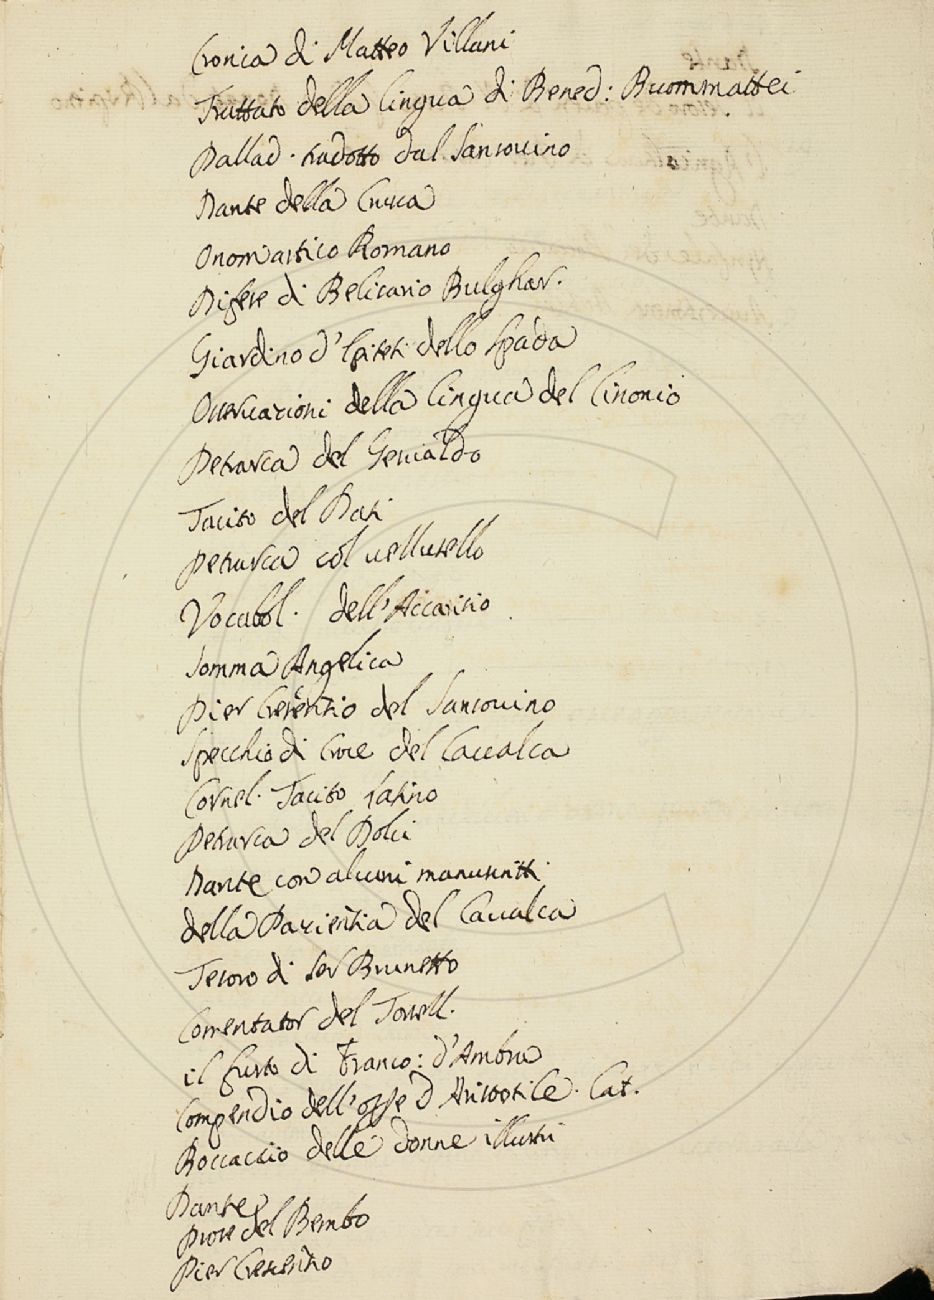 Cronica di Matteo Villani
Trattato della Lingua di Bened: Buommattei
Pallad. tradotto dal Sansovino
Dante della Crusca
Onomastico Romano
Difese di Belisario Bulghar.
Giardino d'Epiteti dello Spada
Osservazioni della Lingua del Cinonio
Petrarca del Gesualdo
Tacito del Dati
Petrarca col uellutello
Vocabol. dell'Accarisio
Somma Angelica
Pier Cresentio del Sansouino
Specchio di Croce del Caualca
Cornel. Tacito Latino
Petrarca del Dolci
Dante con alcuni manuscritti
della Pazientia del Caualca
Tesoro di Ser Brunetto
Comentator del
il furto di Franco: d'Ambra
Compendio dell'opre d'Aristotile. Lat.
Boccaccio delle donne illustri
Dante
Prose del Bembo
Pier Crescentio